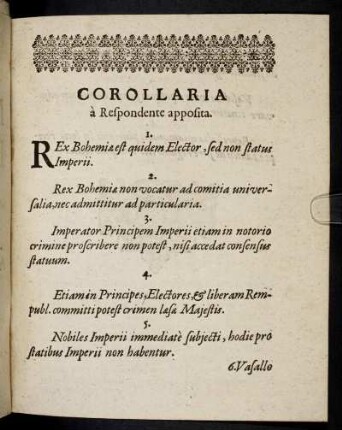 COROLLARIA
à Respondente apposita.
1.
REx Bohemiæ est quidem Elector, sed non status
Imperii.
2.
Rex Bohemiæ non vocatur ad comitia univer-
salia, nec admittitur ad particularia.
3.
Imperator Principem Imperii etiam in notorio
crimine proscribere non potest, nisi accedat consensus
statuum.
4.
Etiam in Principes, Electores, & liberam Rem-
publ. committi potest crimen læsæ Majestis.
5.
Nobiles Imperii immediatè subjecti, hodie pro
statibus Imperii non habentur.
6. Vasallo